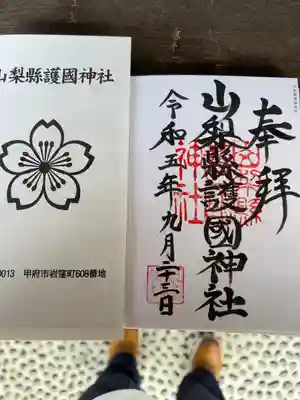 山梨縣護國神社
0013 甲府市岩窪町608番地
奉拝
山梨縣護國神社
令和五年九月二十三日